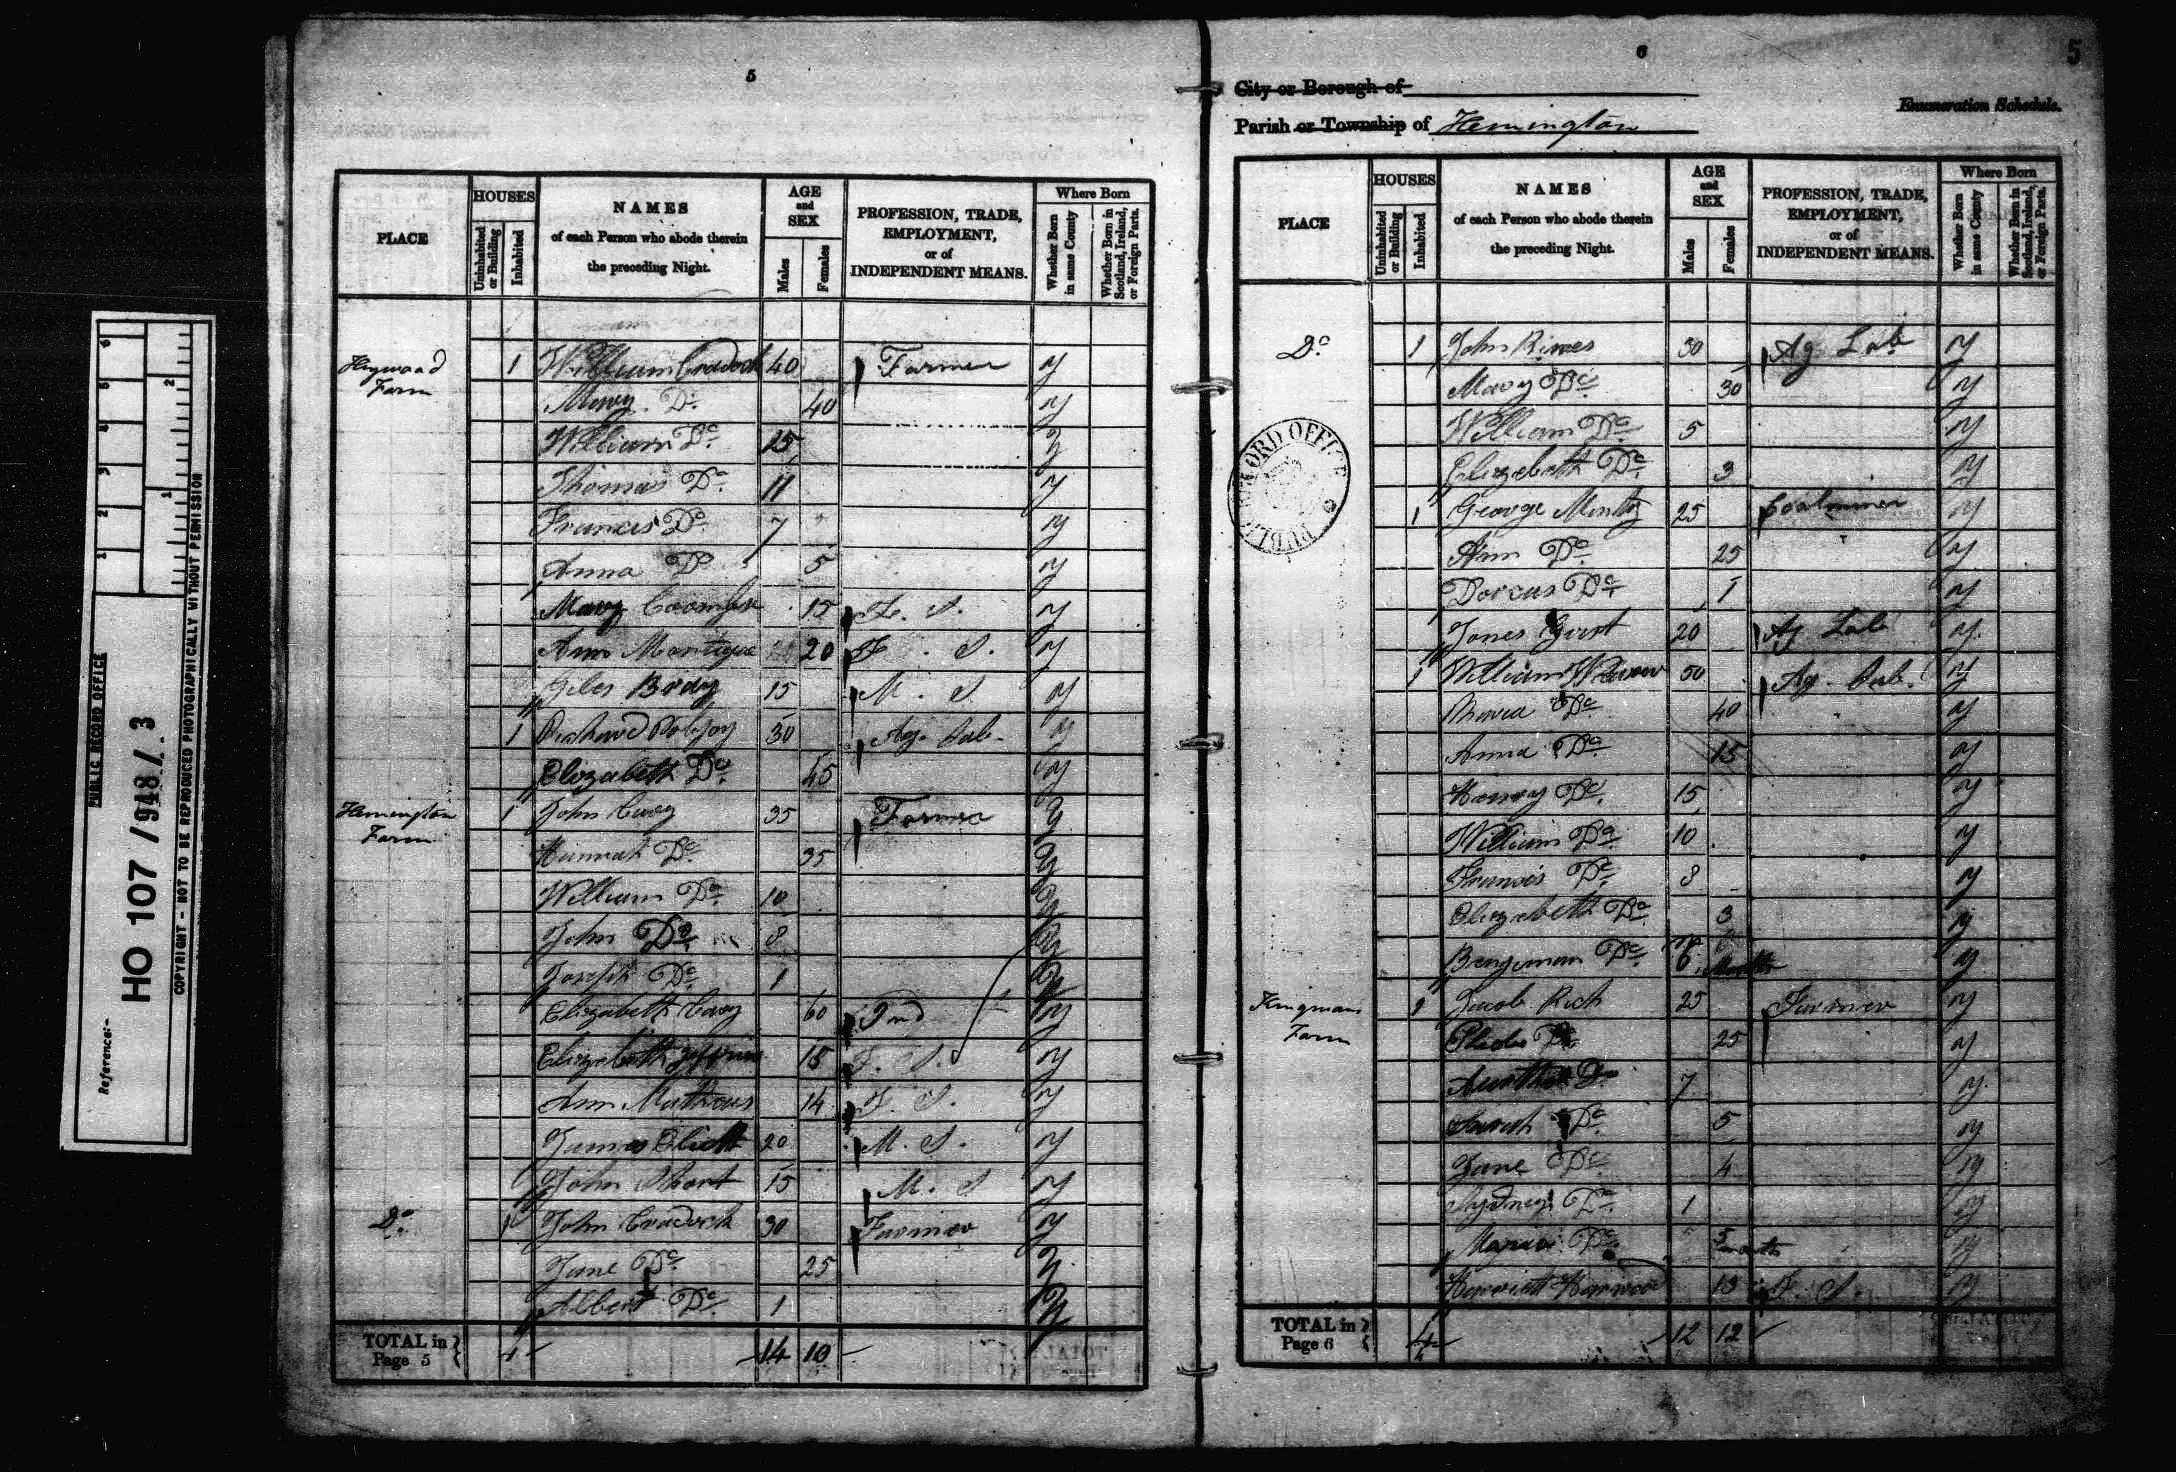 PUBLIC RECORD OFFICE
Reference:-
HO 107 /948/.3
COPYRIGHT - NOT TO BE REPRODUCED PHOTOGRAPHICALLY WITHOUT PERMISSION
5
PLACE HOUSES Uninhabited or Building Inhabited NAMES of each Person who abode therein the preceding Night. AGE and SEX Males Females PROFESSION, TRADE, EMPLOYMENT, or of INDEPENDENT MEANS. Where Born Whether Born in same County Whether Born in Scotland, Ireland, or Foreign Parts.
Haywood Farm 1 William Cradock 40 Farmer y
Mary Do. 40 y
William Do. 25 y
Thomas Do. 11 y
Francis Do. 7 y
Anna Do 5 y
Mary Coombs 15 F. S. y
Ann 20 F. S. y
Giles Brdy 15 M. S. y
1 Richard Robjoy 30 Ag. Lab. y
Elizabeth Do. 45 y
Hemington Farm 1 John Cary 35 Farmer y
Hannah Do. 35 y
William Do. 10 y
John Do. 8 y
Joseph Do. 1 y
Elizabeth Cary 60 Ind y
Elizabeth 15 F. S. y
Ann Mathews 14 F. S. y
James 20 M. S. y
John Short 15 M. S y
Do. 1 John Cradock 30 Farmer y
Jane Do. 25 y
Albert Do. 1 y
TOTAL in Page 5 4 14 10
6
5
City or Borough of
Enumeration Schedule.
Parish or Township of Hemington
PLACE HOUSES Uninhabited or Building Inhabited NAMES of each Person who abode therein the preceding Night. AGE and SEX Males Females PROFESSION, TRADE, EMPLOYMENT, or of INDEPENDENT MEANS. Where Born Whether Born in same County Whether Born in Scotland, Ireland, or Foreign Parts.
Do. 1 John 30 Ag Lab y
Mary Do. 30 y
William Do. 5 y
Elizabeth Do. 3 y
1 George 25 Coalminer y
Ann Do. 25 y
Dorcas Do. 1 y
20 Ag Lab y.
1 William 50 Ag. Lab. y
Do. 40 y
Anna Do. 15 y
Henry Do. 15 y
William Do. 10 y
Francis Do. 8 y
Elizabeth Do. 3 y
Do. 6 Months y
Farm 1 Jacob Rich 25 Farmer y
Do. 25 y
Do. 7 y
Sarah Do. 5 y
Jane Do. 4 y
Sydney Do. 1 y
Maria Do. 5 months y
Harriett 13 F. S. y
TOTAL in Page 6 4 12 12
PUBLIC RECORD OFFICE